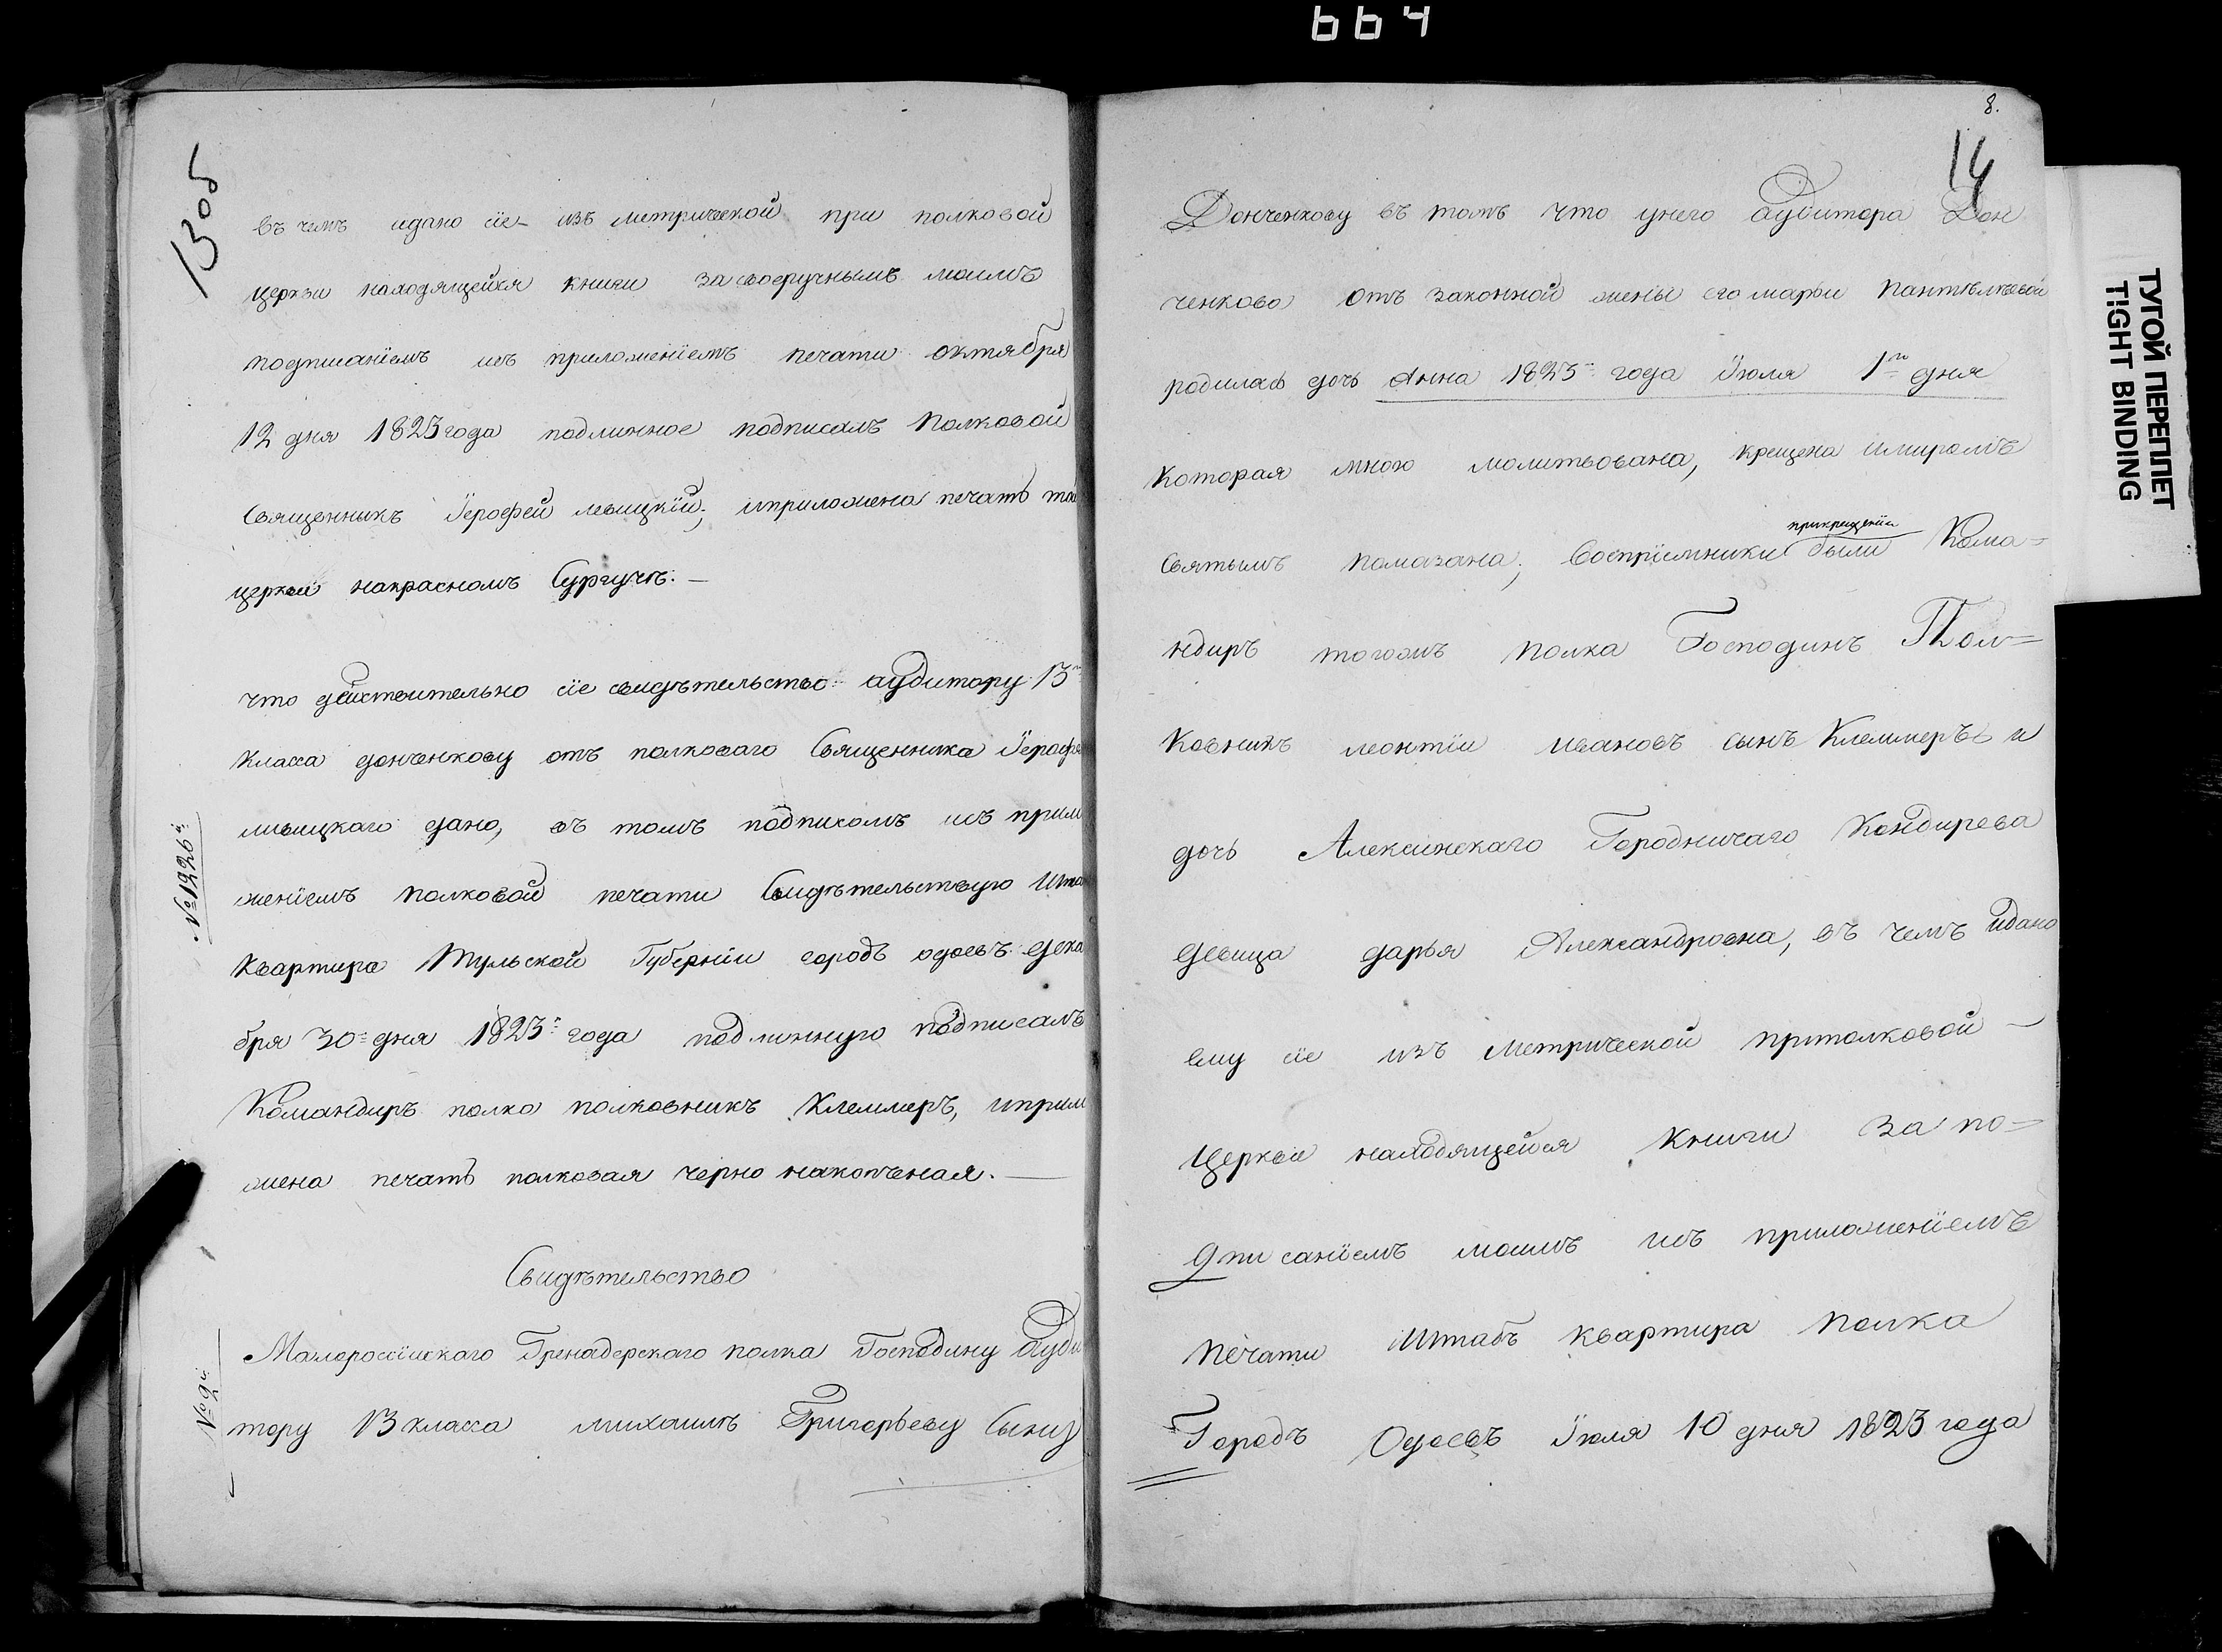 664
13 об
въ чемъ идано сіе из метрической при полковой
церкви находящейся книги за своеручнымъ моимъ
подписаніемъ исъ приложеніемъ печати октября
12 дня 1823 года подлинное подписалъ Полковой
Священникъ Іерофей левицкій; иприложена печать той
церкви накрасномъ Сургучѣ. —
что дѣйствительно сіе свидѣтельство аудитору 13
класса донченкову отъ полковаго Священника Іерофея
левицкаго дано, въ томъ подписомъ исъ прило
№ 1226й
женіемъ полковой печати Свидѣтельствую Штабъ
квартира Тульской Губерніи городъ одоевъ дека
бря 30 дня 1823 года подлинную подписалъ
Командиръ полка полковникъ Клеммеръ, иприло
жена печать полковая черно накопченая. —
Свидѣтельство
№ 2й
Малороссійскаго Гренадерскаго полка Господину Ауди
тору 13 класса михаилѣ Григорьеву Сыну
8.
14
Донченкову въ томъ что унего аудитора Дон
ченкова отъ законной жены его марьи пантѣлѣевой
родилась дочь Анна 1823 года Іюля 1го дня
которая мною молитвована, крещена имиромъ
прикрещеніи
Святымъ помазана; Воспріемники были Кома=
ндиръ тогожъ полка Господинъ Пол=
ковникъ леонтіи ивановъ сынъ Клеммеръ и
дочь Алексинскаго Городничаго Кондирева
девица дарья Александровна, въ чемъ идано
ему сіе изъ Метрической приполковой —
Церкви находящейся книги за по=
дписаніемъ моимъ исъ приложеніемъ
печати Штабъ квартира полка
Городъ Одоевъ Іюля 10 дня 1823 года
ТУГОЙ ПЕРЕПЛЕТ
TIGHT BINDING